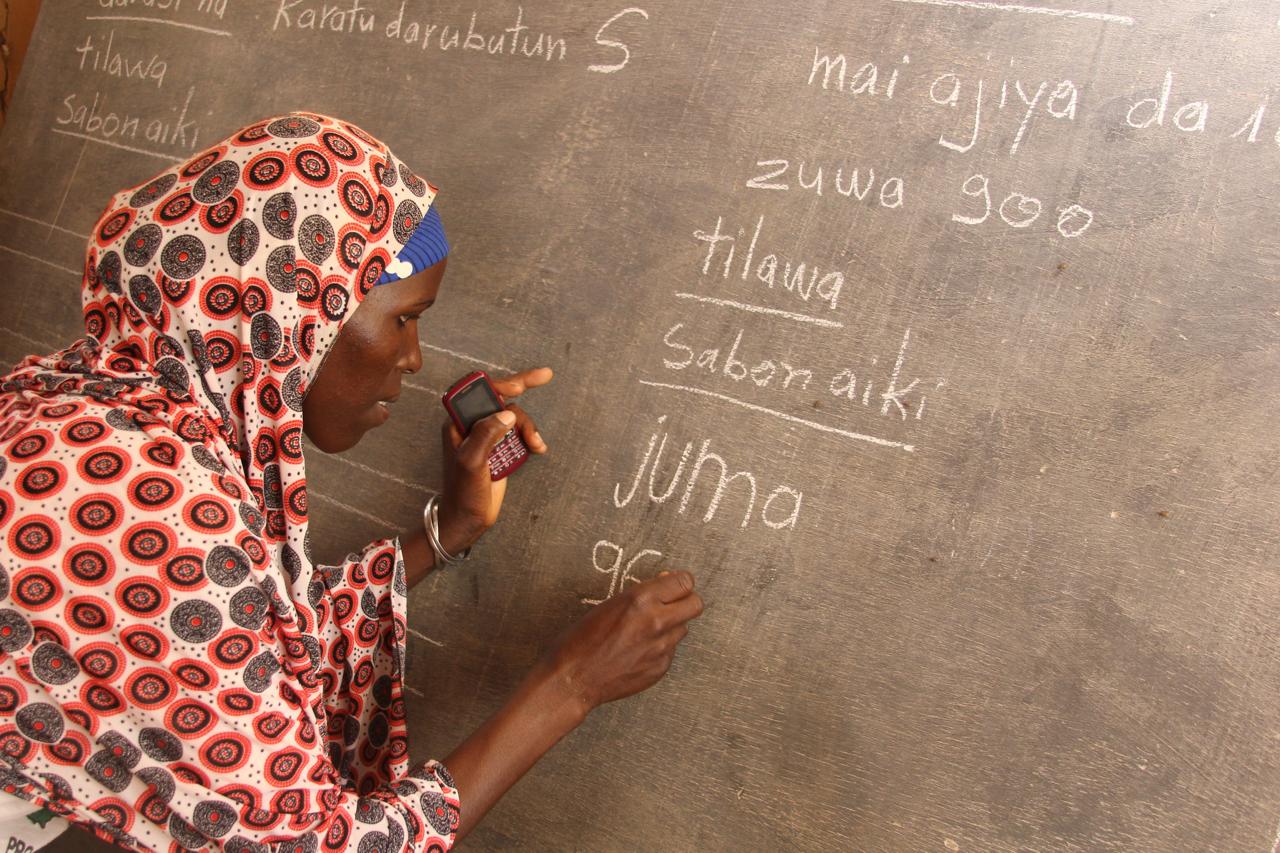 darasi na Karatu darubutun S
tilawa
sabon aiki
mai ajiya da
zuwa goo
tilawa
sabon aiki
juma